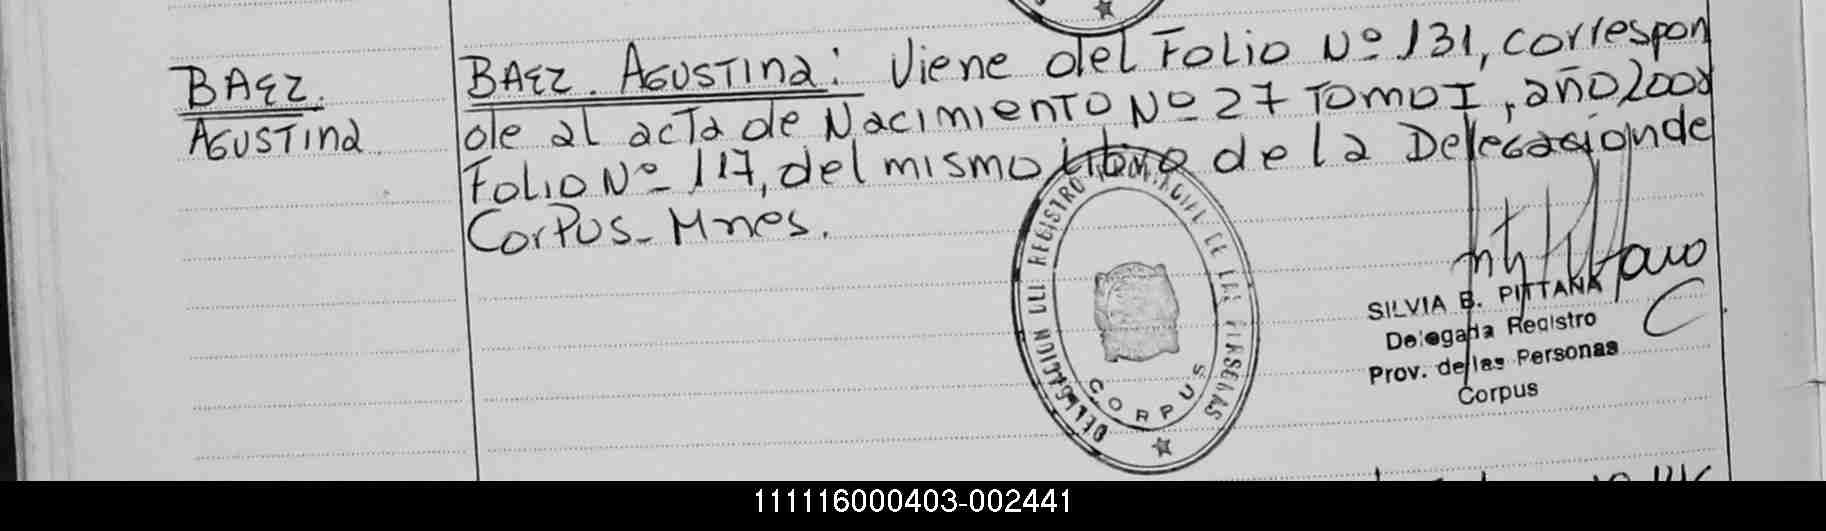 BAEZ.
AGUSTINA
BAEZ. AGUSTINA: Viene del Folio Nº 131, correspon
de al acta de Nacimiento Nº 27 TOMO I, año 2002
Folio Nº 117, del mismo libro de la Delegacion de
Corpus - Mnes.
DELEGACION REGISTRO PROVINCIAL DE LAS PERSONAS
CORPUS
SILVIA B. PITTANA
Delegada Registro
Prov. de las Personas
Corpus
111116000403-002441